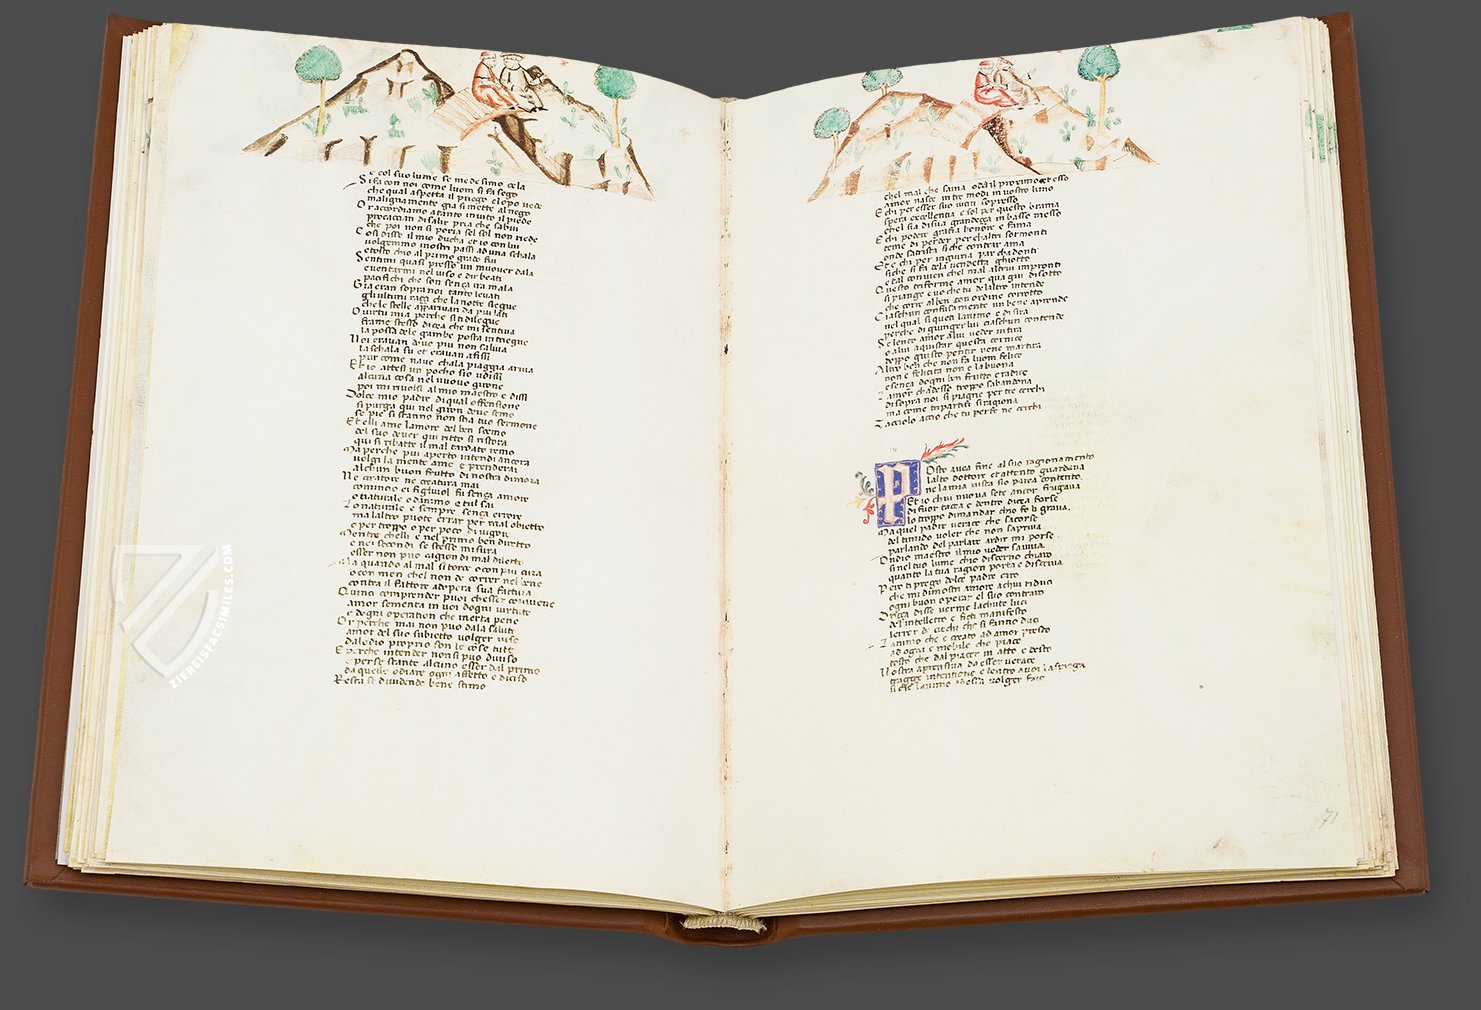 e col suo lume se medesimo cela
Si fa con noi come luom si fa sego
che qual aspetta il priego e lopo vede
malignamente gia si mette al nego
Or accordiamo atanto invito il piede
procacciam di salir pria che sabui
che poi non si poria sel sol non riede
Cosi disse il mio ducha et io con lui
volgemmo inostri passi ad una schala
e tosto chio al primo grado fui
Sentimi quasi presso un muover dala
e ventarmi nel viso e dir beati
pacifichi che son sença ira mala
Gia eran sopra noi tanto levati
gliultimi raggi che la notte siegue
che le stelle apparivan da piu lati
O virtu mia perche si ti dilegue
fra me stesso dicea che mi sentiva
la possa dele gambe posta in triegue
Noi eravam dove piu non saliva
la schala su et eravam afissi
pur come nave chala piaggia ariva
Et io attesi un pocho sio udissi
alcuna cosa nel nuovo girone
poi mi rivolsi al mio maestro e dissi
Dolce mio padre di qual offensione
si purga qui nel giron dove semo
se pie si stanno non stia tuo sermone
Et elli ame lamore del ben scemo
del suo dever qui ritto si ristora
qui si ribatte il mal tardato remo
Ma perche piu aperto intendi ancora
volgi la mente ame e prenderai
alchun buon frutto di nostra dimora
Ne creatore ne creatura mai
comincio ei figliuol fu sença amore
o naturale o danimo e tul sai
Lo naturale e sempre sença errore
ma laltro puote errar per mal obietto
o per troppo o per poco di vigore
Mentre chelli e nel primo ben diretto
e nei secondi se stesso misura
esser non puo cagion di mal diletto
Ma quando al mal si torce o con piu cura
o con men che non de correr nel bene
contra il fattore adopera sua fattura
Quinci comprender puoi chesser convene
amor sementa in voi dogni virtute
e dogni operation che merta pene
Or perche mai non puo dala salute
amor del suo subietto volger viso
dalodio proprio son le cose tute
E perche intender non si puo diviso
e per se stante alcuno esser dal primo
da quello odiare ogni affetto e deciso
Resta se dividendo bene stimo
chel mal che sama oda il proximo et esso
amor nasce in tre modi in vostro limo
E chi per esser suo vicin sopresso
spera excellentia e sol per questo brama
chel sia di sua grandezza in basso messo
E chi podere gratia honore e fama
teme di perder perchaltri sormonti
onde satrista si che contrar ama
Et e chi per ingiuria par chadonti
si che si fa dela vendetta ghiotto
e tal convien chel mal altrui impronti
Questo triforme amor qua giu disotto
si piange e vo che tu delaltro intende
che corre alben con ordine corrotto
Ciaschun confusamente un bene aprende
nel qual si queti lanimo e disira
perche di giunger lui ciaschun contende
Se lento amor alui veder vi tira
o alui aquistar questa cornice
doppo giusto pentir vene martira
Altro ben che non fa luom felice
non e felicita non e la buona
essença dogni ben frutto e radice
Lamor chadesso troppo sabandona
disopra noi si piagne per tre cerchi
ma come tripartiti si ragiona
Tacciolo accio che tu per se ne cerchi
Posto avea fine al suo ragionamento
lalto dottore et attento guardava
ne la mia vista sio parea contento
Et io chui nuova sete ancor frugava
di fuor tacea e dentro dicea forse
lo troppo dimandar chio fo li grava
Ma quel padre verace che sacorse
del timido voler che non sapriva
parlando del parlare ardir mi porse
Ondio maestro il mio veder saviva
si nel tuo lume chio discerno chiaro
quanto la tua ragion porta e discriva
Pero ti prego dolce padre caro
che mi dimostri amore achui riduci
ogni buon operar el suo contraro
Driçça disse verme lachute luci
del intelletto e fieti manifesto
lerror de ciechi che si fanno duci
Lanimo che e creato ad amar presto
ad ogni e mobile che piace
tosto che dal piacer in atto e desto
Nostra aprensiva da esser verace
tragge intentione e dentro avoi la spiega
si che lanimo adessa volger face
71
ZIEREISFACSIMILES.COM